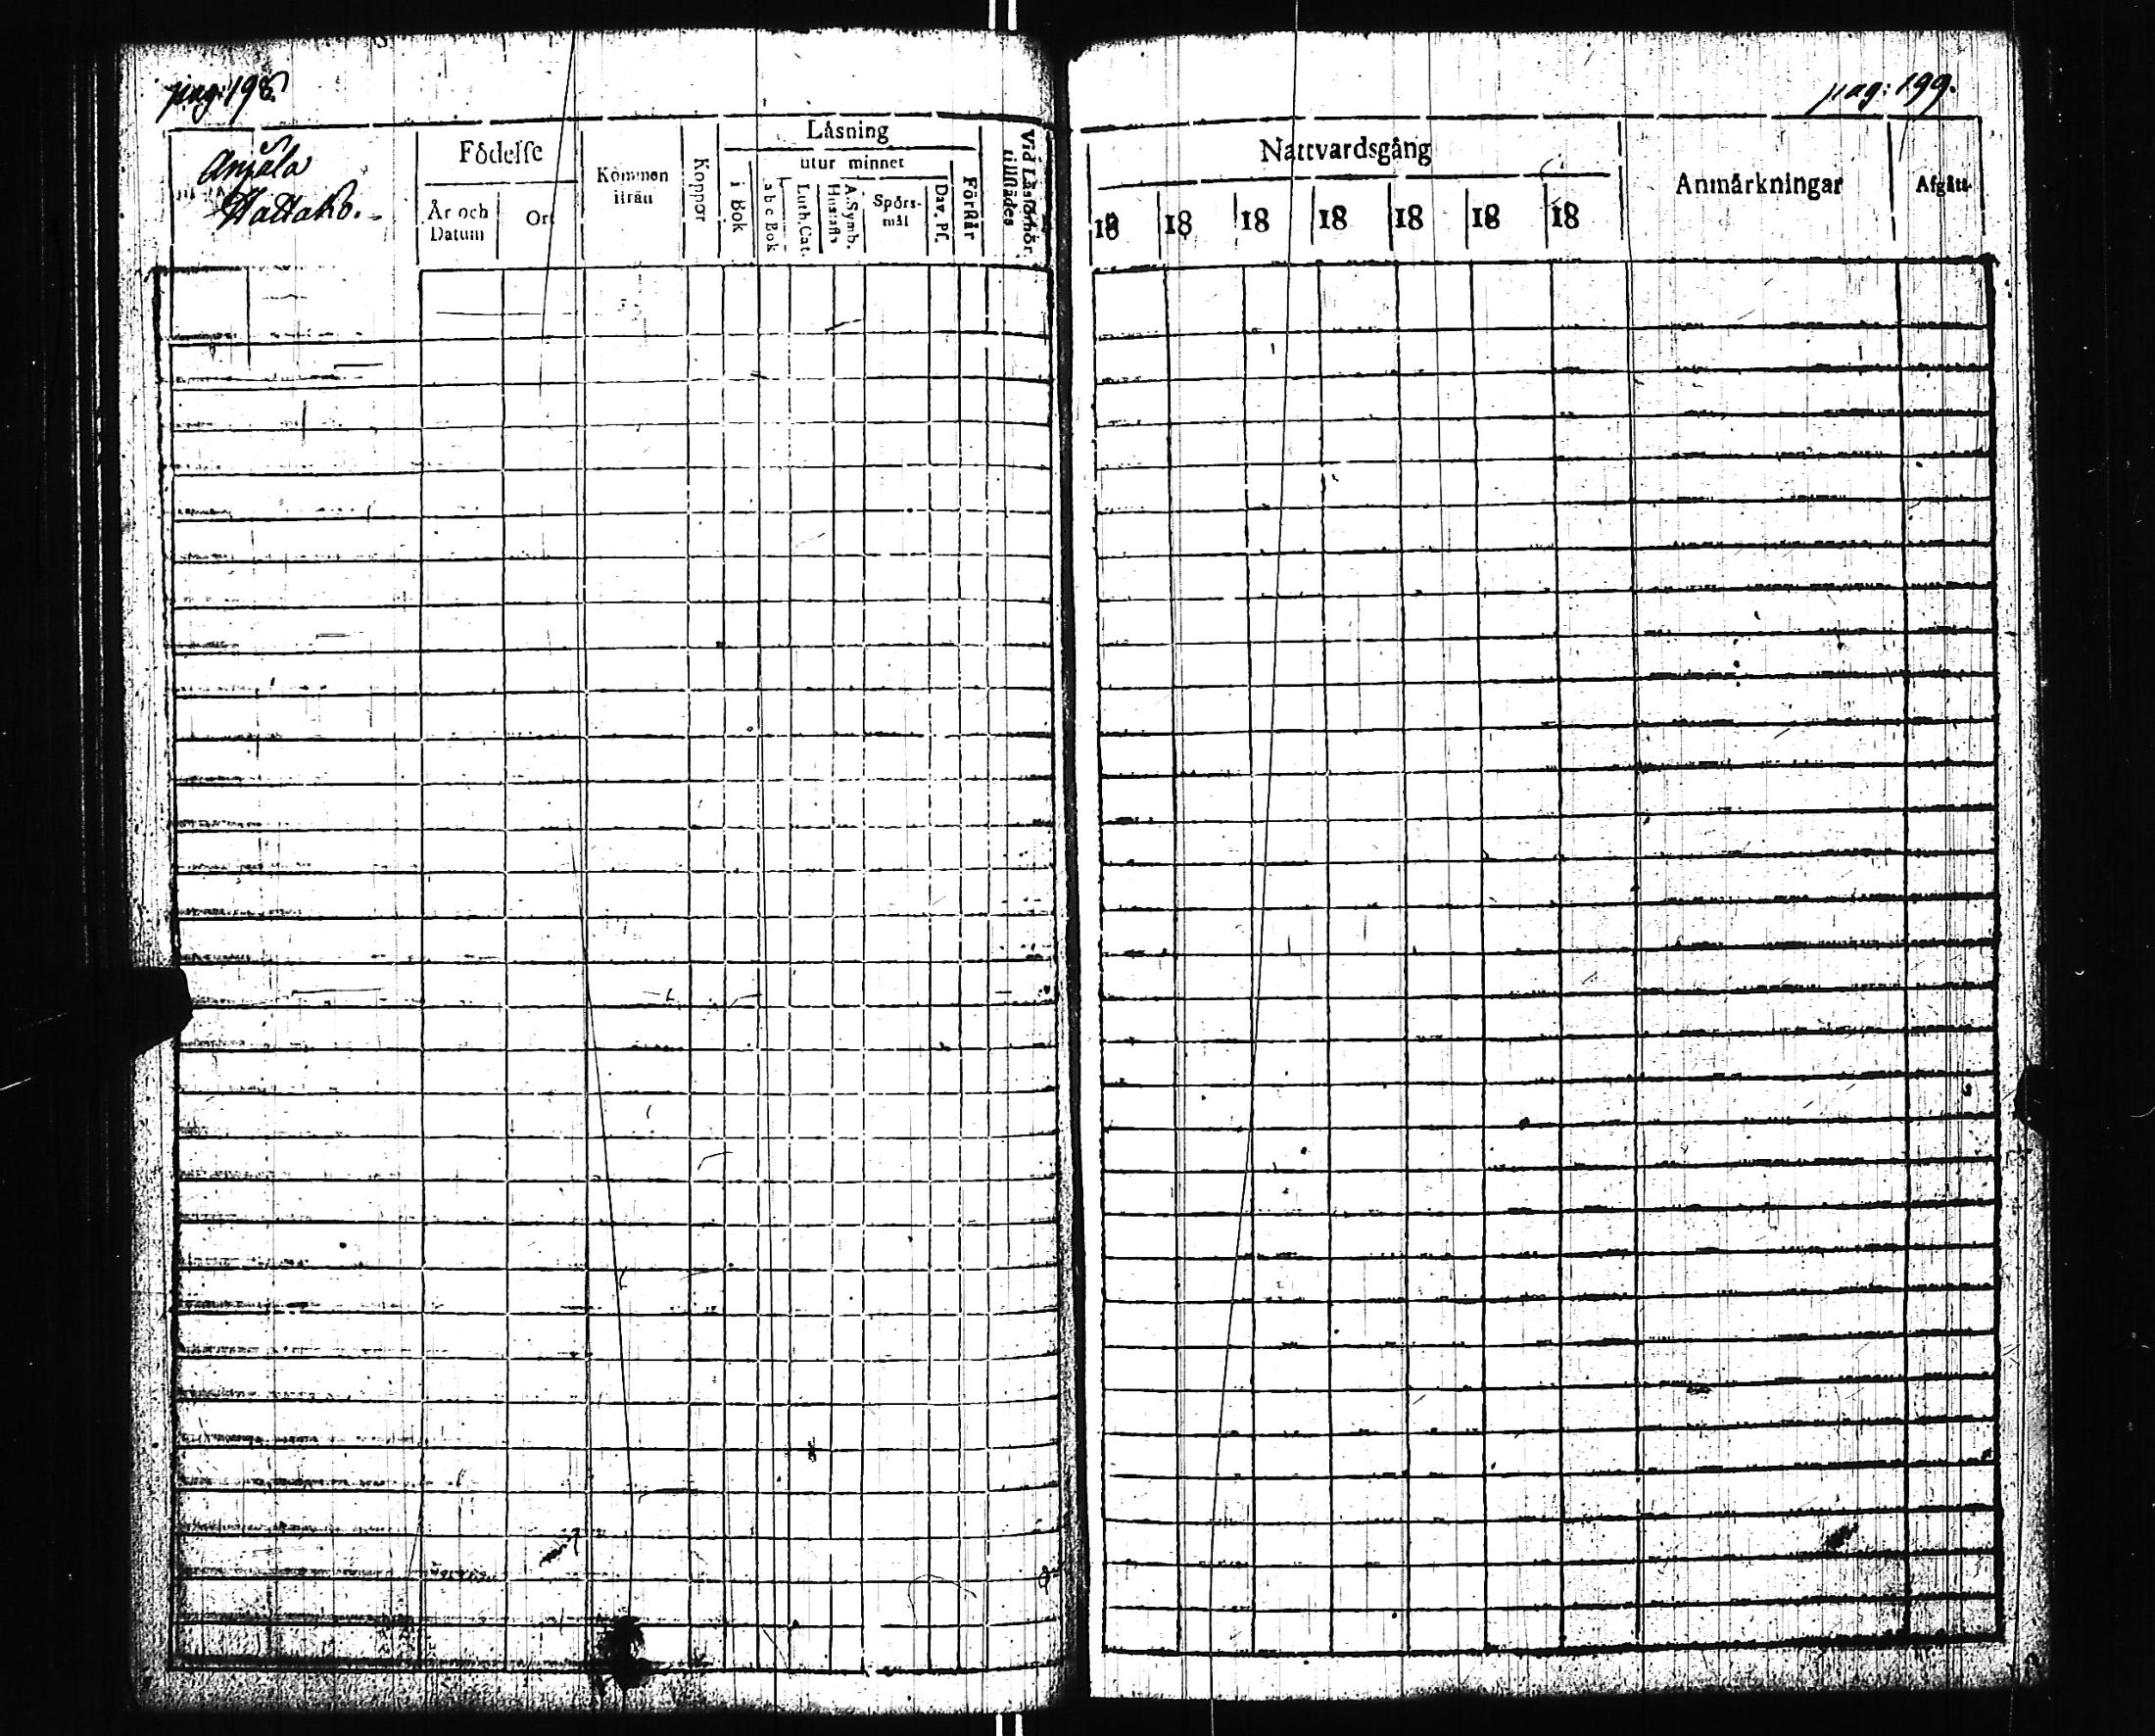 pag: 198.
pag: 199.
Anjala
Födelse
Kommen ifrån
Koppor
Läsning
Vid Läsförhör tillstädes
Nattvardsgång
Anmärkningar
Afgått
utur minnet
År och Datum
Ort
i Bok
abc Bok
Luth. Cat.
Hustafl.
A. Symb.
Spörsmål
Dav. Ps.
Förstår
18 18 18 18 18 18 18